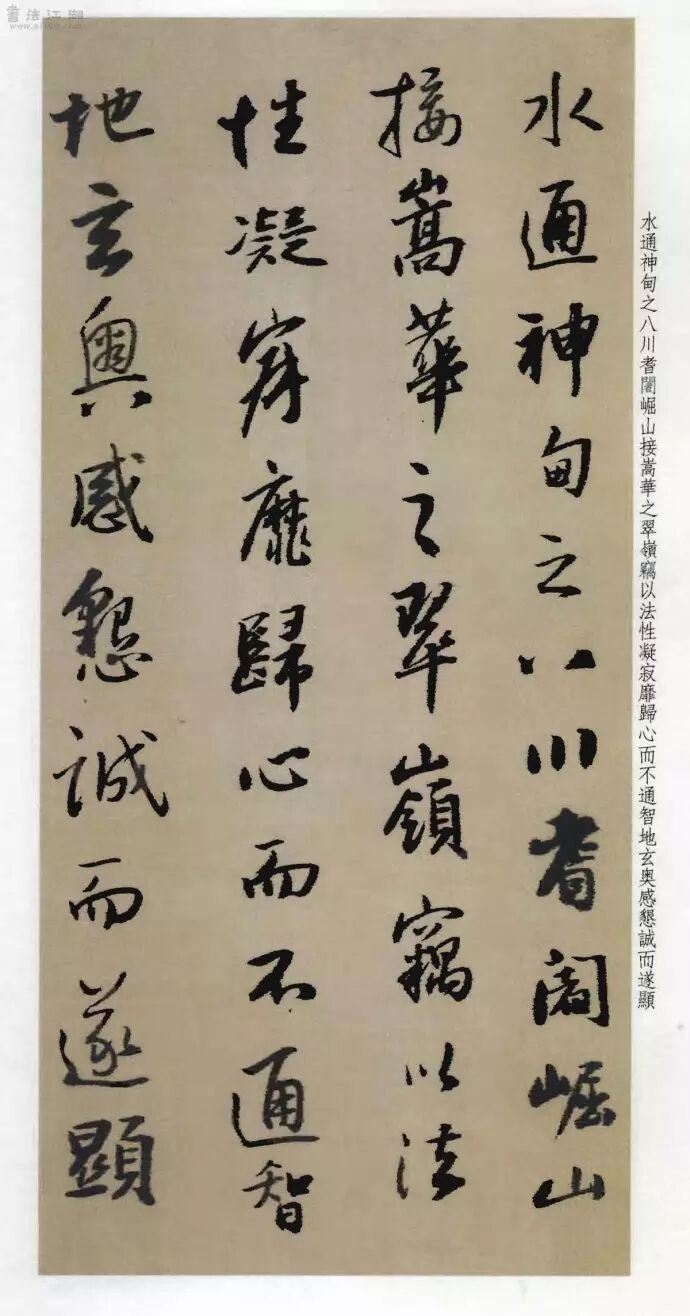 書法江湖
水通神甸之八川耆闍崛山
接嵩華之翠嶺竊以法
性凝寂靡歸心而不通智
地玄奧感懇誠而遂顯
水通神甸之八川耆闍崛山接嵩華之翠嶺竊以法性凝寂靡歸心而不通智地玄奥感懇誠而遂顯